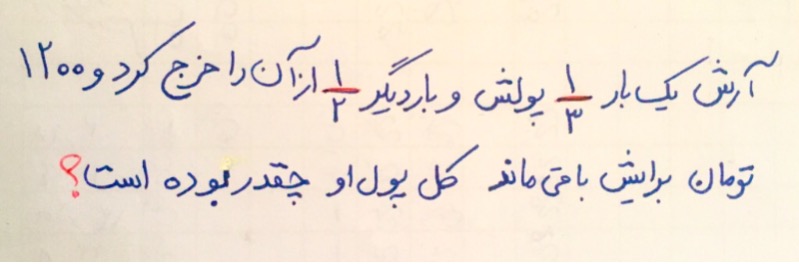 آرش یک بار ۱/۳ پولش و بار دیگر ۱/۲ از آن را خرج کرد و ۱۲۰۰
تومان برایش باقی ماند کل پول او چقدر بوده است؟